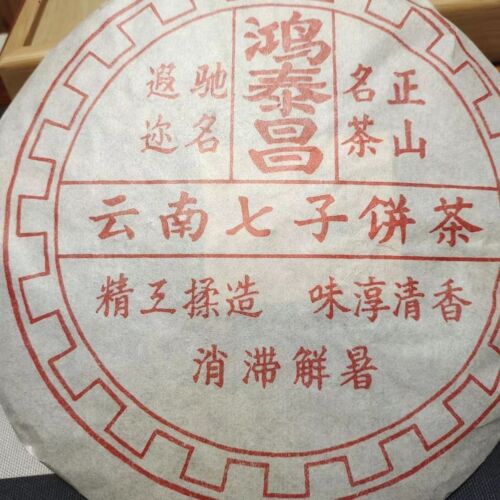 鸿泰昌
正山
名茶
驰名
遐迩
云南七子饼茶
精工揉造 味淳清香
消滞解暑